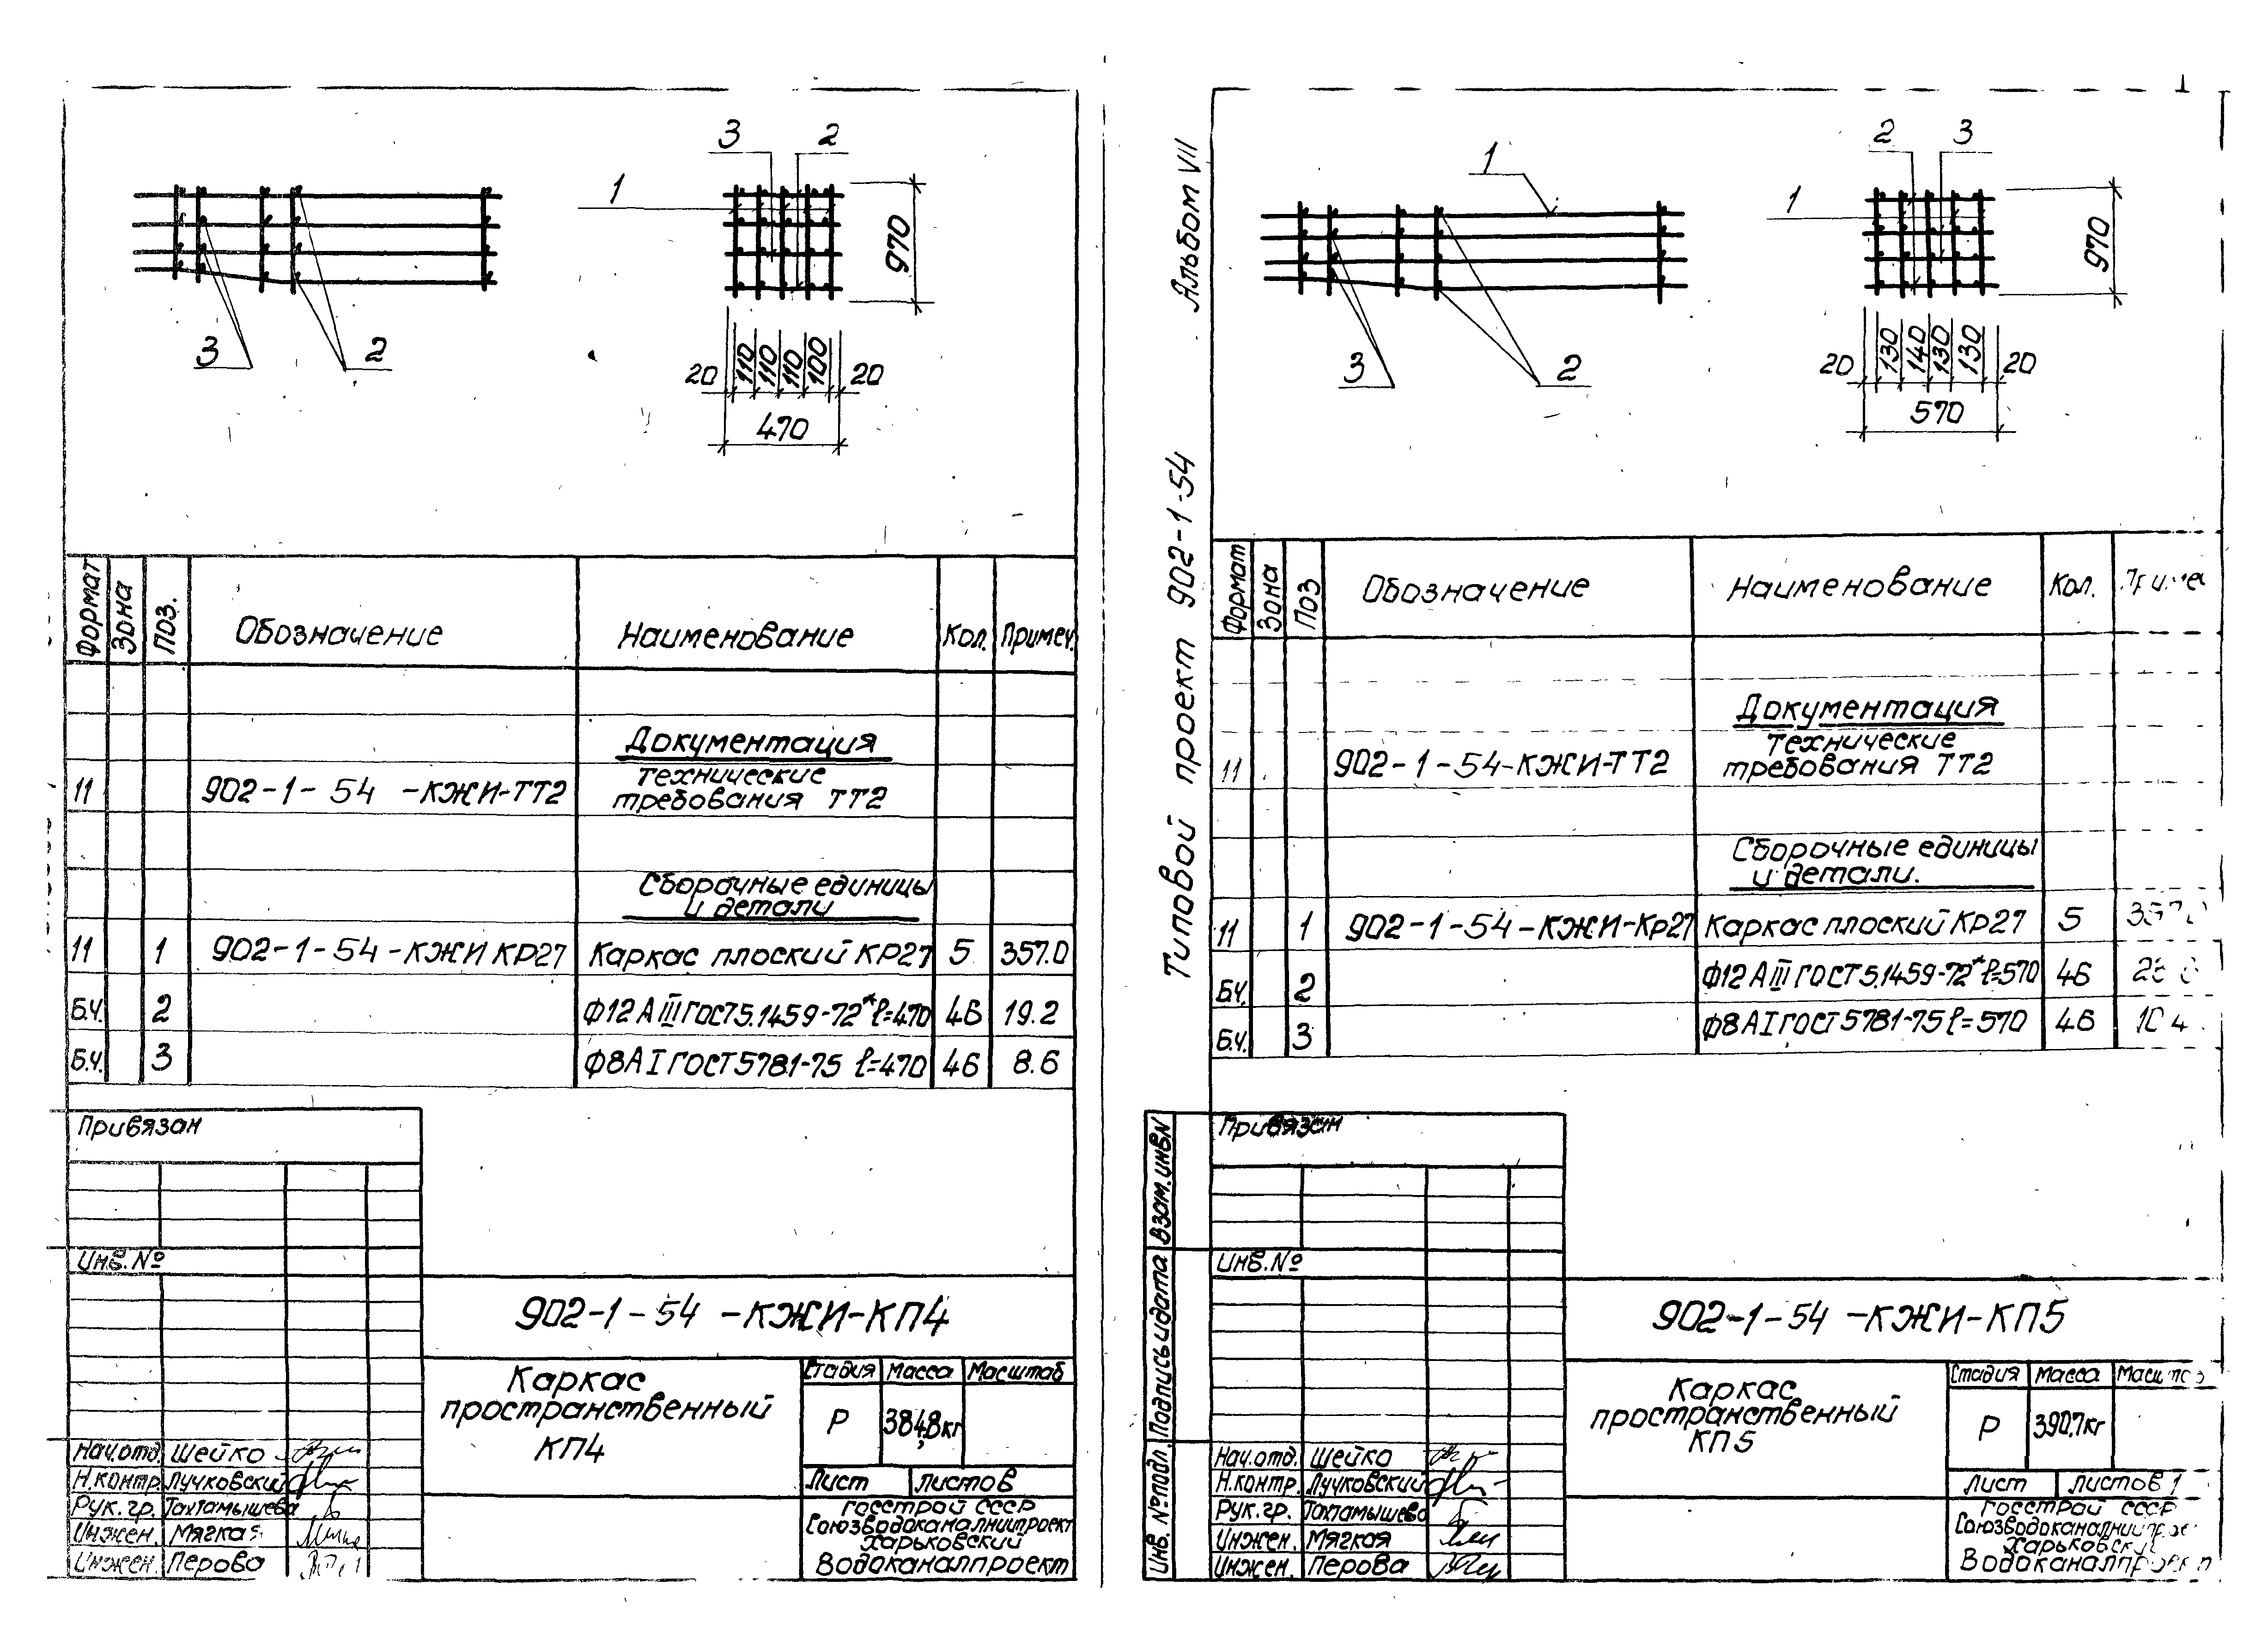 3 2
1
970
3 2
20 110 110 110 100 20
470
Формат Зона Поз. Обозначение Наименование Кол. Примеч.
Документация
11 902-1-54 -КЖИ-ТТ2 Технические
требования ТТ2
Сборочные единицы
и детали
11 1 902-1-54 -КЖИ КР27 Каркас плоский КР27 5 357.0
Б.Ч. 2 Ф12 А III ГОСТ 5.1459-72* ℓ=470 46 19.2
Б.Ч. 3 Ф8 А I ГОСТ 5781-75 ℓ=470 46 8.6
Привязан
Инв. №
902-1-54 -КЖИ-КП4
Каркас
пространственный
КП4
Стадия Масса Масштаб
Р 384,8кг
Лист Листов
Нач.отд. Шейко
Н.контр. Лучковский
Рук.гр. Тахтамышева
Инжен. Мягкая
Инжен. Перова
Госстрой СССР
Союзводоканалниипроект
Харьковский
Водоканалпроект
Альбом VII
Типовой проект 902-1-54
1
2 3
1
970
3 2
20 130 140 130 130 20
570
Формат Зона Поз Обозначение Наименование Кол.
Документация
11 902-1-54-КЖИ-ТТ2 Технические
требования ТТ2
Сборочные единицы
и детали.
11 1 902-1-54-КЖИ-Кр27 Каркас плоский КР27 5
Б.Ч. 2 Ф12 А III ГОСТ 5.1459-72* ℓ=570 46
Б.Ч. 3 Ф8 А I ГОСТ 5781-75 ℓ=570 46
Привязан
Инв. №
Взам. инв N
Подпись и дата
Инв. № подл.
902-1-54 -КЖИ-КП5
Каркас
пространственный
КП5
Стадия Масса
Р 390,7кг
Лист Листов 1
Нач.отд. Шейко
Н.контр. Лучковский
Рук.гр. Тахтамышева
Инжен. Мягкая
Инжен. Перова
Госстрой СССР
Союзводоканалниипроект
Харьковский
Водоканалпроект